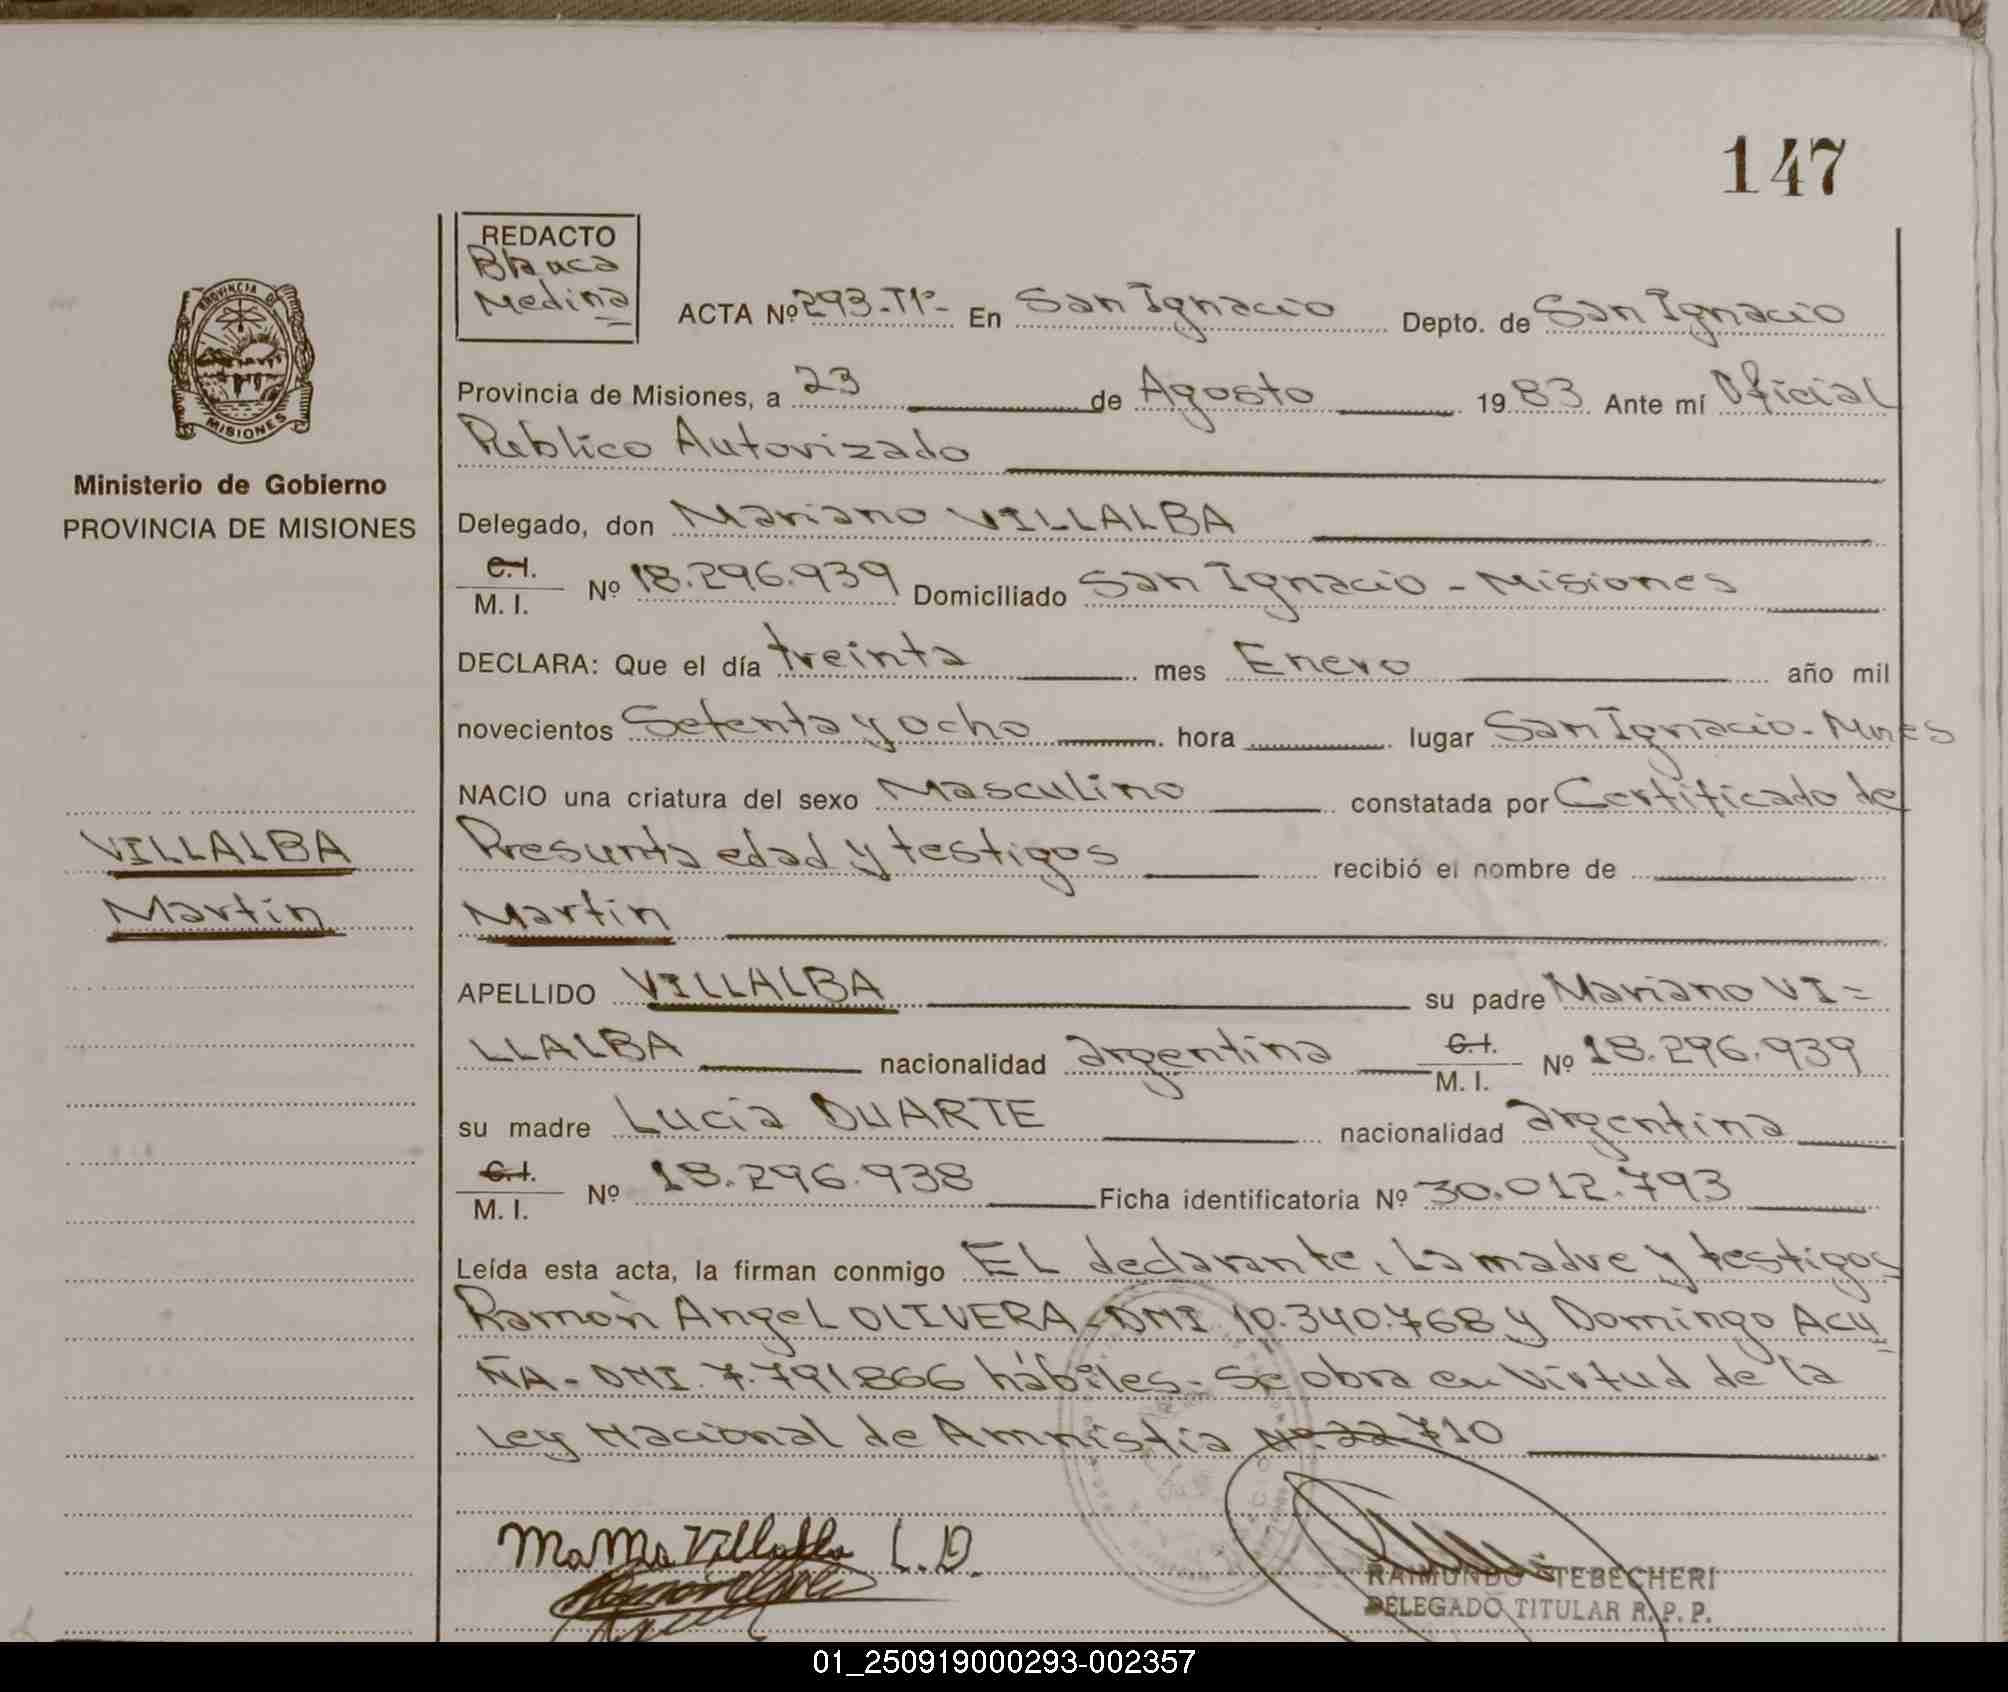 147
REDACTO
Blanca
Medina
ACTA Nº 293-Tº1- En San Ignacio Depto. de San Ignacio
Provincia de Misiones, a 23 de Agosto 1983 Ante mí Oficial
Publico Autorizado
PROVINCIA DE
MISIONES
Ministerio de Gobierno
PROVINCIA DE MISIONES
Delegado, don Mariano VILLALBA
C.I.
M. I. Nº 18.296.939 Domiciliado San Ignacio - Misiones
DECLARA: Que el día treinta mes Enero año mil
novecientos Setenta y ocho hora lugar San Ignacio - Mnes
NACIO una criatura del sexo Masculino constatada por Certificado de
VILLALBA
Presunta edad y testigos recibió el nombre de
Martín
Martín
APELLIDO VILLALBA su padre Mariano VI=
LLALBA nacionalidad argentina C.I. M. I. Nº 18.296.939
su madre Lucía DUARTE nacionalidad argentina
C.I.
M. I. Nº 18.296.938 Ficha identificatoria Nº 30.012.793
Leída esta acta, la firman conmigo EL declarante, La madre y testigos
Ramón Angel OLIVERA - DMI 10.340.768 y Domingo ACU=
ÑA - DMI. 7.791866 hábiles - Se obra en virtud de la
Ley Nacional de Amnistia Nº 22710
Villalba L. D.
RAIMUNDO STEBECHERI
DELEGADO TITULAR R. P. P.
01_250919000293-002357